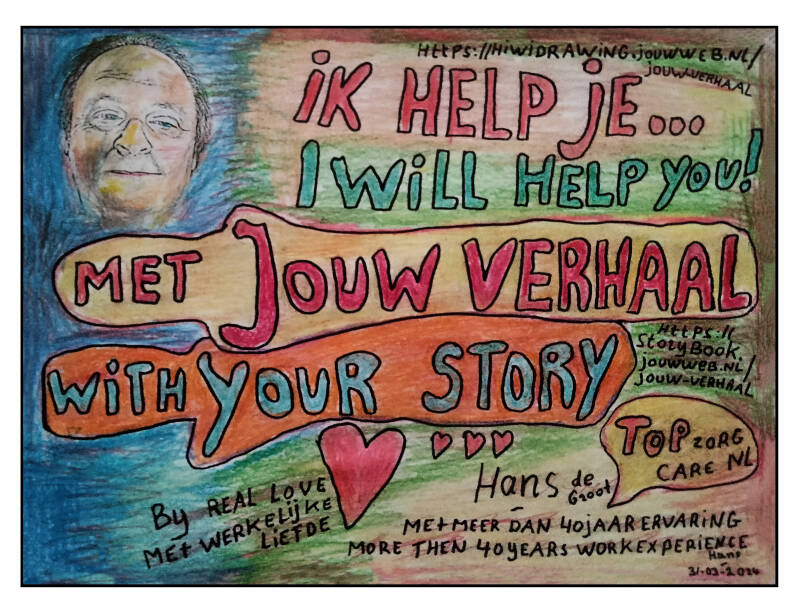 HTTPS://HIWIDRAWING.JOUWWEB.NL/
JOUW-VERHAAL
iK HELP je...
I WiLL HELP you!
MET JOUW VERHAAL
WiTH YOUR STORY
HTTPS://
STORYBOOK.
jouwweB.NL/
JOUW-VERHAAL
TOP ZORG
CARE NL
Hans de Groot
By REAL LOVE
MET WERKELIJKE
LIEFDE
MET MEER DAN 40 JAAR ERVARING
MORE THEN 40 YEARS WORKEXPERIENCE
Hans
31-03-2024